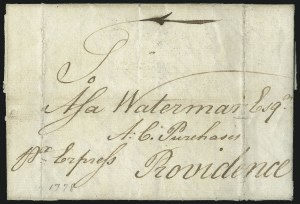 To
Asa Waterman Esqr
A: C: Purchases
pr. Express
Providence
1778